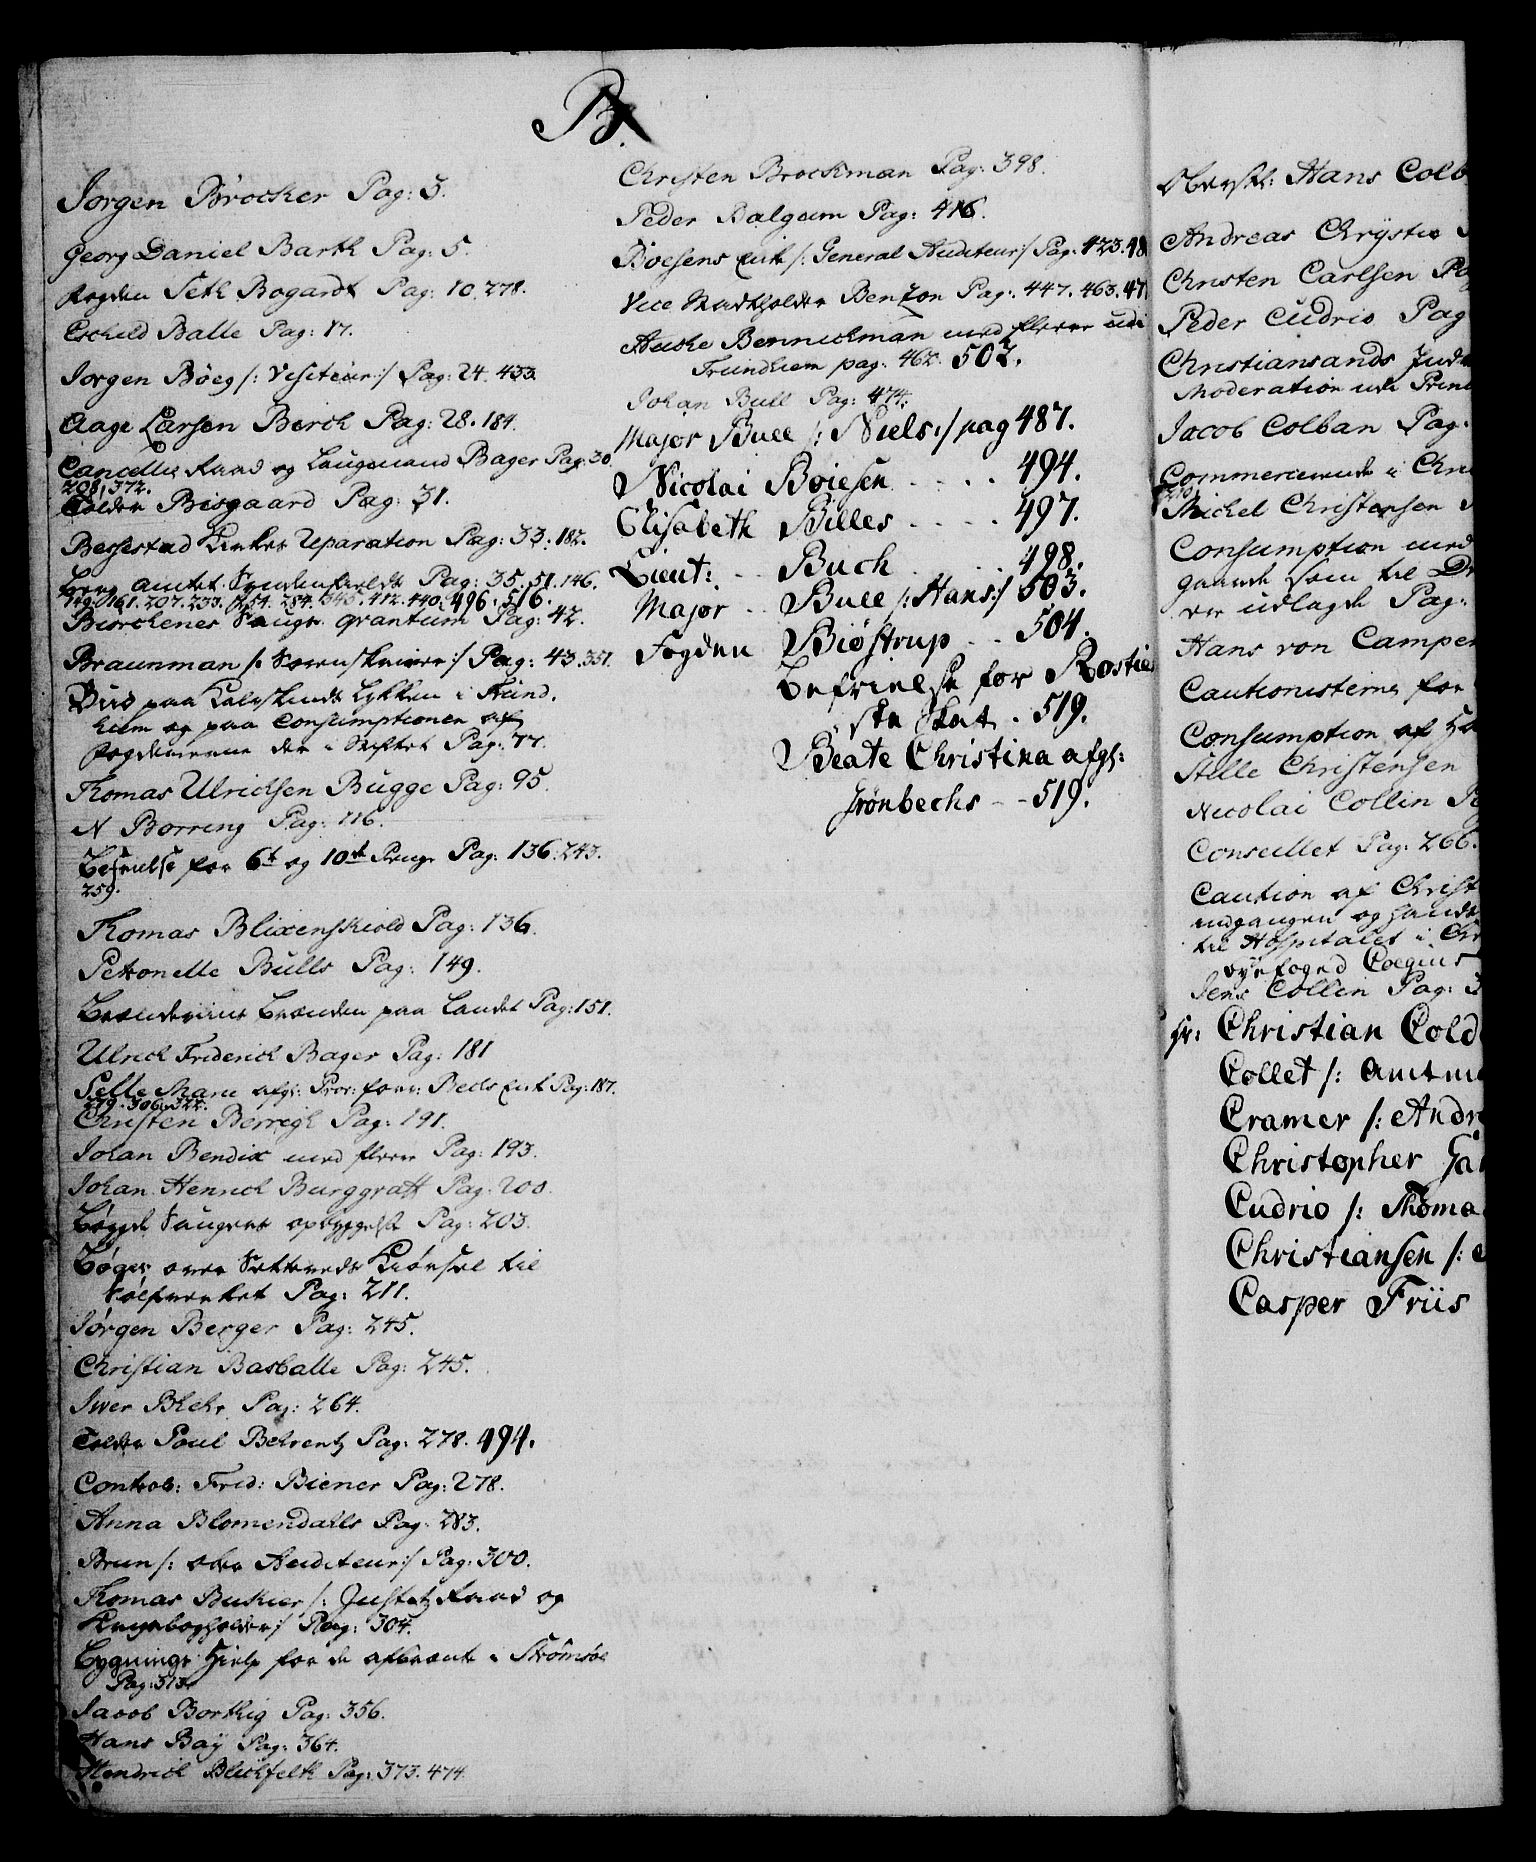 B.
Jorgen Bröcker Pag: 3.
Georg Daniel Barth Pag: 5.
Fogden Seth Bogardt Pag: 10. 278.
Escheld Balle Pag: 17.
Jorgen Böeg /: Visiteur :/ Pag: 24. 433.
Aage Larsen Berch Pag: 28. 184.
Cancellie Raad og Laugmand Bager Pag: 30.
208. 372.
Tolder Bisgaard Pag: 31.
Kirkes Reparation Pag: 33. 182.
Pag: 35. 51. 146.
149. 161. 207. 233. 284. 345. 412. 440. 496. 516.
qvantum Pag: 42.
Braunman /: Sorenskriver :/ Pag: 43. 351.
Bud paa Lykken i Trund,
hiem og paa Consumptionen af
der i Stiftet Pag: 77.
Thomas Ulrichsen Bugge Pag: 95.
N Borreng Pag: 116.
for 6t og 10de Penge Pag: 136. 243.
259.
Thomas Blixenskiold Pag: 136.
Petronelle Bulls Pag: 149.
Brænden paa Landet Pag: 151.
Ulrich Friderich Bager Pag: 181
Pelle Marie afgl: Pror: forr: Becks Enk Pag: 187.
279. 306. 322.
Christen Berregh Pag: 191.
Johan Bendix med flere Pag: 193.
Johan Henrich Burggraff Pag: 200.
Bøyde opbyggelse Pag: 203.
Bøger over Kiørsel til
Sølfverket Pag: 211.
Jørgen Berger Pag: 245.
Christian Basballe Pag: 245.
Iwer Blehr Pag: 264.
Tolder Poul Behrentz Pag: 278. 494.
Control: Frid: Biener Pag: 278.
Anna Blomendalls Pag: 283.
Brun /: ober Auditeur :/ Pag: 300.
Thomas Buskier /: Justitz Raad og
Krigsbogholder :/ Pag: 304.
Bygnings Hielp for de afbrænte i Strömsöe
Pag: 313.
Jacob Borthig Pag: 356.
Hans Baÿ Pag: 364.
Hendrich Blichfelth Pag: 373. 474.
Christen Brockman Pag: 398.
Peder Balgam Pag: 416.
Boesens Enk /: General Auditeur :/ Pag: 423. 48
Vice Stadtholder Benzon Pag: 447. 463. 47
Anche Bennichman med flere udi
Trundhiem pag: 462. 502.
Johan Bull Pag: 474.
Major Bull /: Niels :/ pag 487.
Nicolai Boiesen . . . . 494.
Elisabeth Billes . . . . 497.
Lieut: Buch . . . 498.
Major Bull /: Hans :/ 503.
Fogden Biøstrup . . 504.
Befrielse for Rostie
ste Skat . 519.
Beate Christina afgl:
Grønbechs - - 519.
Oberstl: Hans Colb
Andreas Chrystie
Christen Carlsen Pag
Peder Cudrio Pag
Christiansands
Moderation udi
Jacob Colban Pag.
i Chri
210.
Michel Christensen
Consumption med
som til
er udlagde Pag:
Hans von Campen
Cautionisterne for
Consumption af
Stille Christensen
Nicolai Collin Pa
Consullet Pag: 266.
Caution af Christ
indgangen og
til Hospitalet i Chr
byefoged
Jens Collin Pag: 3
Hr: Christian Cold
Collet /: Amtm
Cramer /: Andr
Christopher Ha
Cudrio /: Thoma
Christiansen /:
Casper Friis